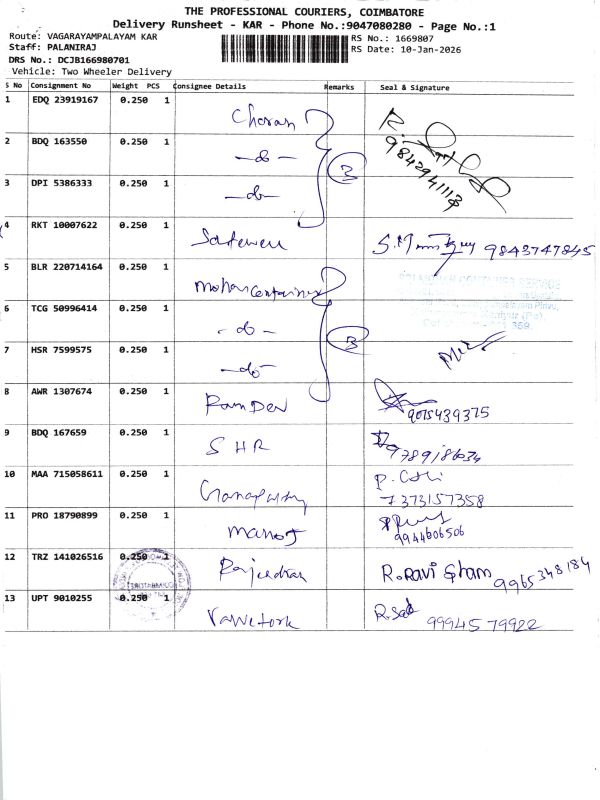 THE PROFESSIONAL COURIERS, COIMBATORE
Delivery Runsheet - KAR - Phone No.:9047080280 - Page No.:1
Route: VAGARAYAMPALAYAM KAR
RS No.: 1669807
Staff: PALANIRAJ
RS Date: 10-Jan-2026
DRS No.: DCJB166980701
Vehicle: Two Wheeler Delivery
S No Consignment No Weight PCS Consignee Details Remarks Seal & Signature
1 EDQ 23919167 0.250 1 Charan
2 BDQ 163550 0.250 1 -do- 3 9842941113
3 DPI 5386333 0.250 1 -do-
4 RKT 10007622 0.250 1 9843747845
5 BLR 220714164 0.250 1 Mohan Container
6 TCG 50996414 0.250 1 -do- 3
7 HSR 7599575 0.250 1 -do-
8 AWR 1307674 0.250 1 Ram Dev 9075439375
9 BDQ 167659 0.250 1 SHR
10 MAA 715058611 0.250 1 Ganapathy 7373157358
11 PRO 18790899 0.250 1 Manoj 9944606506
12 TRZ 141026516 0.250 1 Rajendran R.Ravi 9965348184
13 UPT 9010255 0.250 1 9994579922